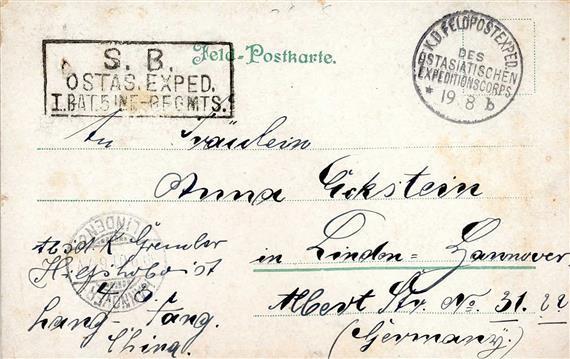 Feld-Postkarte.
S. B.
OSTAS. EXPED.
I. BAT. 5 INF.-REGMTS.
K.D. FELDPOSTEXPED.
DES
OSTASIATISCHEN
EXPEDITIONSCORPS.
* 19 8 b
An Fräulein
Anna Eckstein
in Linden = Hannover.
Albert Str. No. 31.
(Germany.)
Absd.
Lang-Fang.
China.
LINDEN
HANNOVER